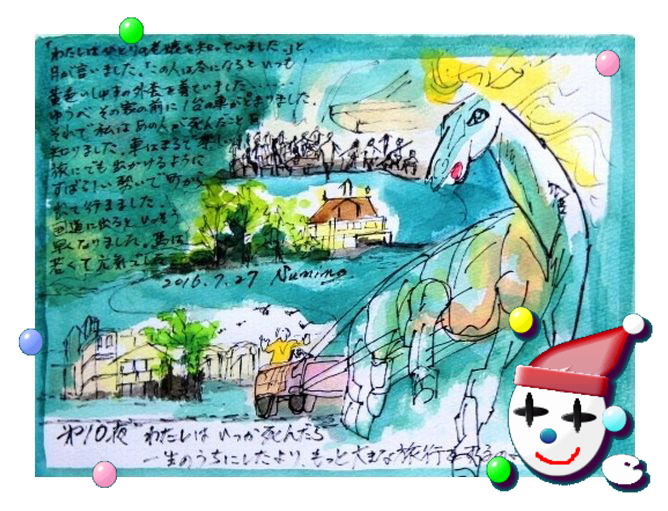 「わたしはひとりの老嬢を知っていました。」と、
月が言いました。「この人は冬になるといつも
黄色いしゅすの外套を着ていました.....
ゆうべ その家の前に1台の車がとまりました.
それで私はあの人が死んだことを
知りました。車はまるで楽しい
旅にでも出かけるように
すばらしい勢いで町から
出て行きました.
国道に出ると いっそう
早くなりました。馬は
若くて元気でした
2016.7.27 Numing.
第10夜 わたしは いつか死んだら
一生のうちにしたより、もっと大きな旅行をするのよ